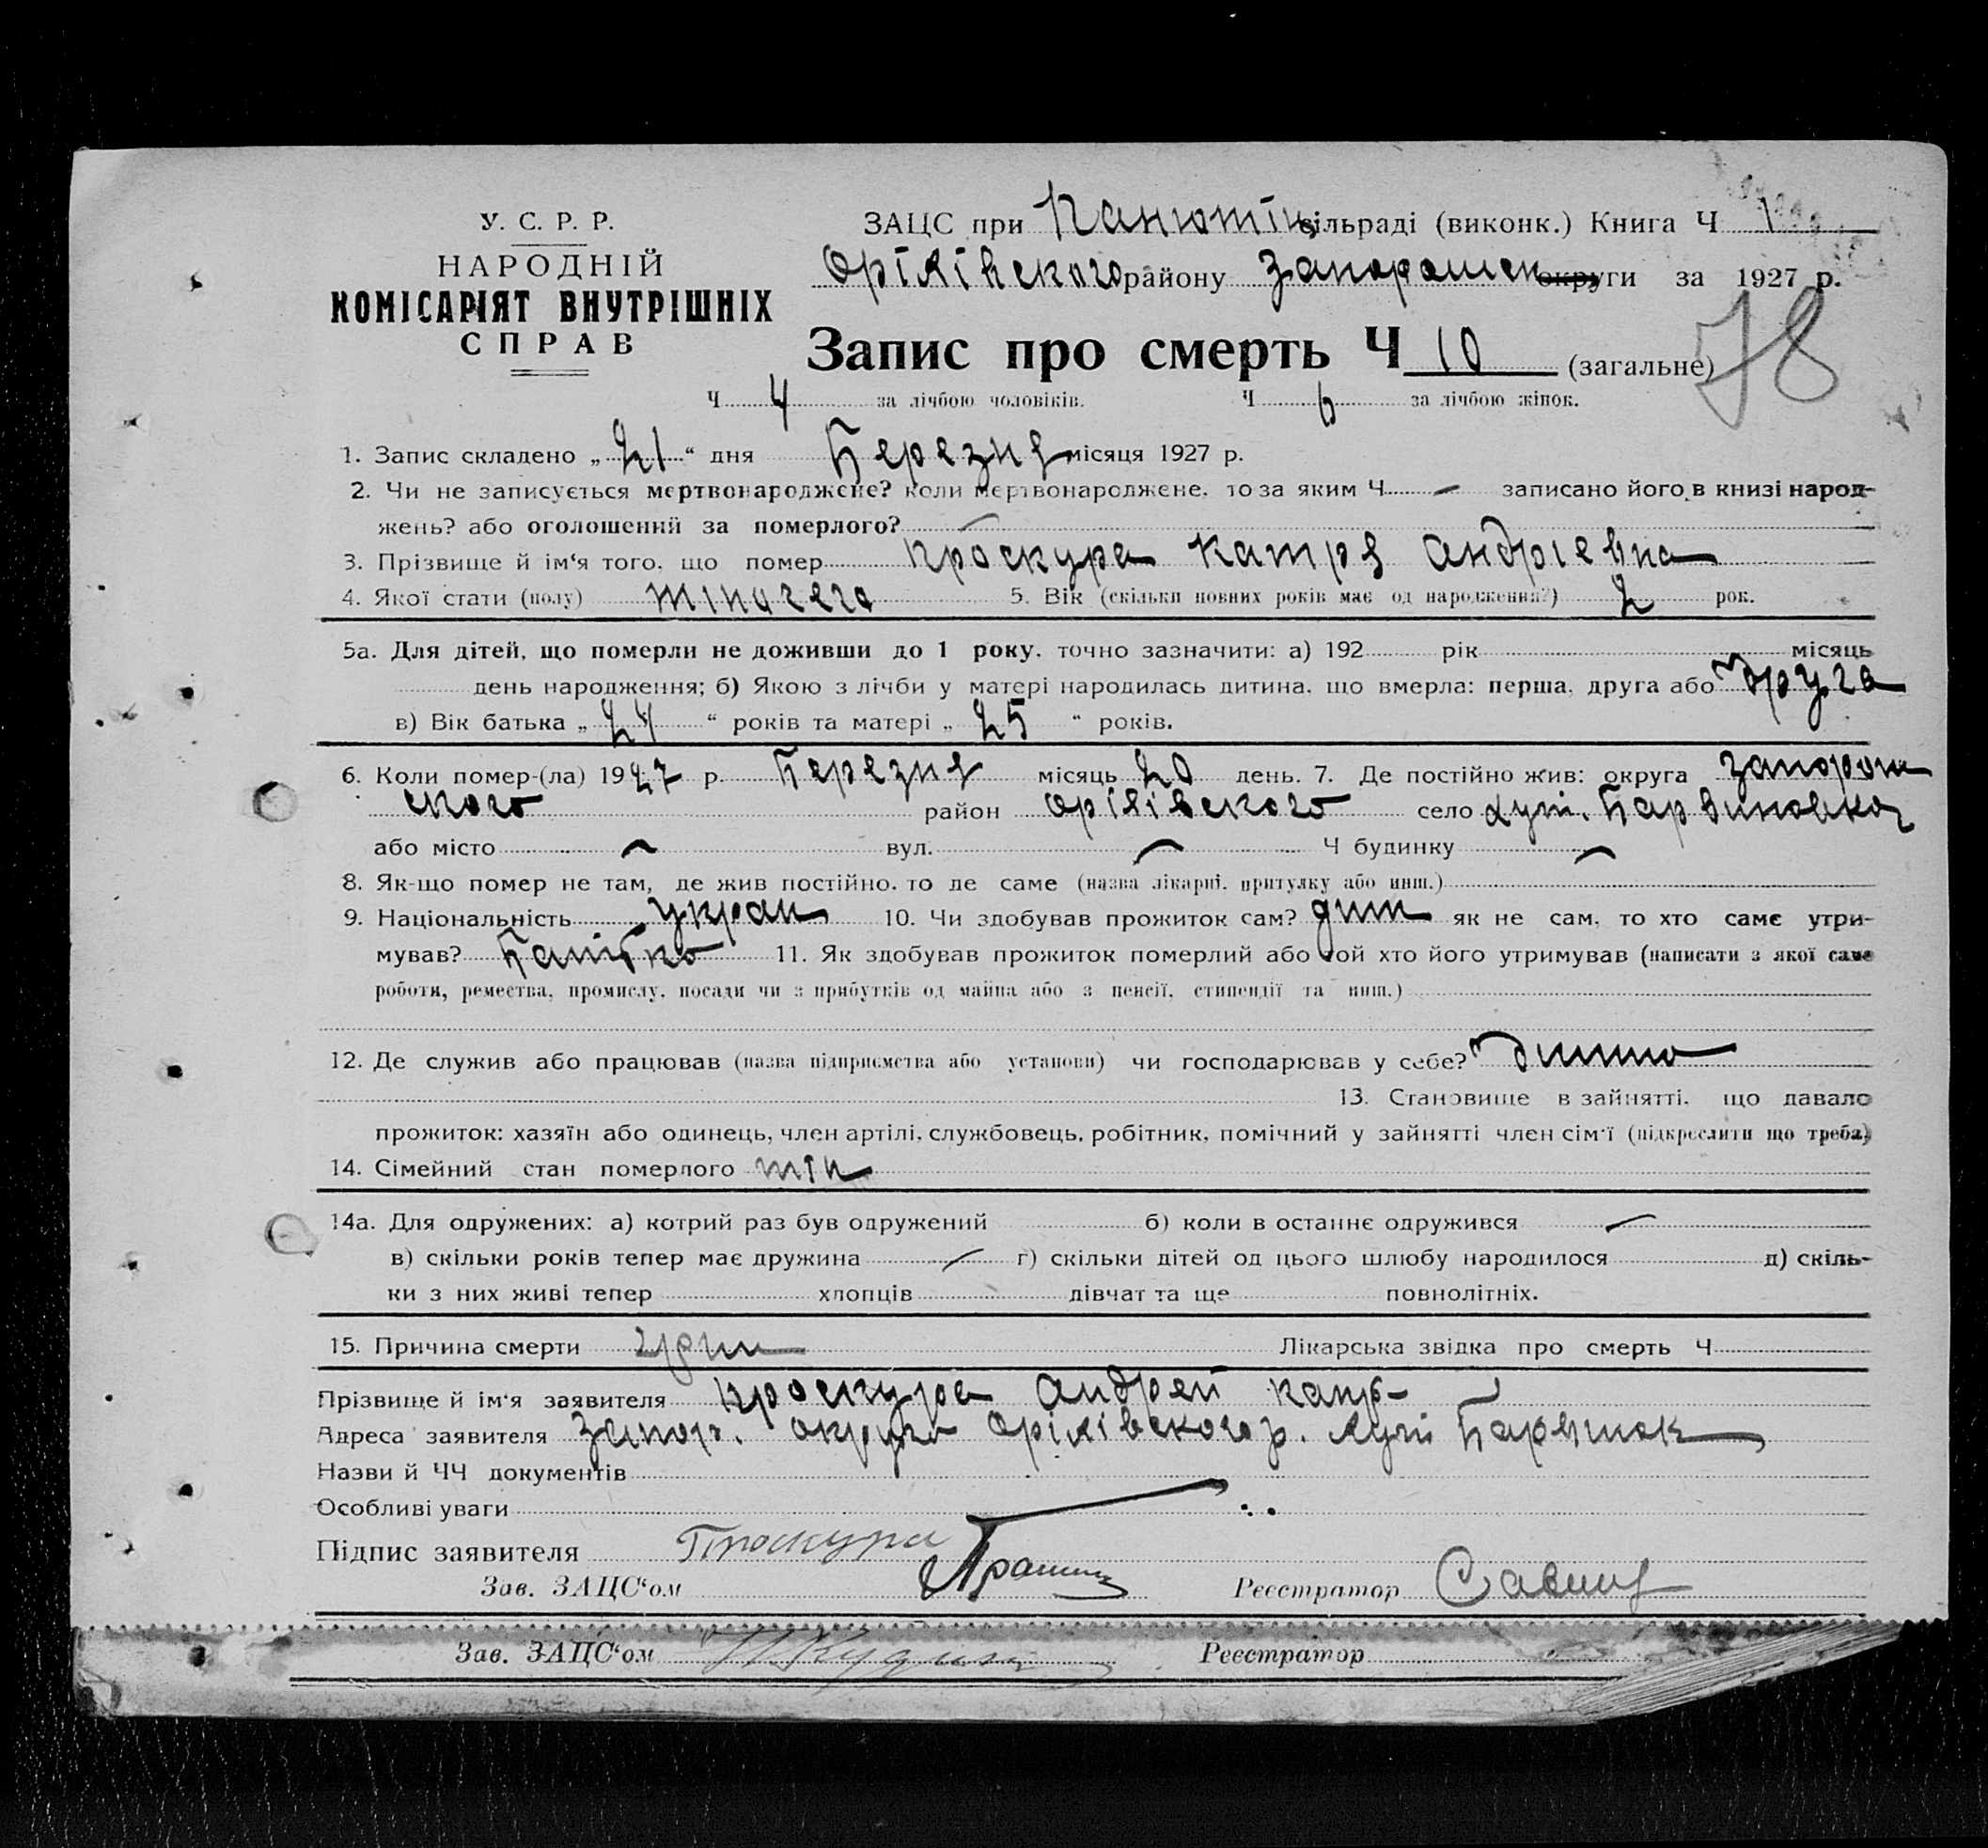 У. С. Р. Р.
НАРОДНІЙ
КОМІСАРІЯТ ВНУТРІШНІХ
СПРАВ
ЗАЦС при Панютін сільраді (виконк.) Книга Ч 1
Оріхівского району Запорошск округи за 1927 р.
78
Запис про смерть Ч 10 (загальне)
Ч 4 за лічбою чоловіків. Ч 6 за лічбою жінок.
1. Запис складено „ 21 “ дня Березня місяця 1927 р.
2. Чи не записується мертвонароджене? коли мертвонароджене, то за яким Ч — записано його в книзі народ-
жень? або оголошений за померлого? —
3. Прізвище й ім‘я того, що помер Проскура Катря Андрієвна
4. Якої стати (полу) 5. Вік (скільки повних років має од народження?) 2 рок.
5а. Для дітей, що померли не доживши до 1 року, точно зазначити: а) 192 рік місяць
день народження; б) Якою з лічби у матері народилась дитина, що вмерла: перша, друга або друга
в) Вік батька „ 24 “ років та матері „ 25 “ років.
6. Коли помер-(ла) 1927 р. Березня місяць 20 день. 7. Де постійно жив: округа Запорош
ского район Оріхівского село хут.
або місто — вул. — Ч будинку —
8. Як-що помер не там, де жив постійно, то де саме (назва лікарні, притулку або инш.)
9. Національність украи 10. Чи здобував прожиток сам? дит як не сам, то хто саме утри-
мував? Батько 11. Як здобував прожиток померлий або той хто його утримував (написати з якої саме
роботи, ремества, промислу, посади чи з прибутків од майна або з пенсії, стипендії та инш.)
12. Де служив або працював (назва підприємства або установи) чи господарював у себе? дитино
13. Становище в зайнятті, що давало
прожиток: хазяїн або одинець, член артілі, службовець, робітник, помічний у зайнятті член сім‘ї (підкреслити що треба)
14. Сімейний стан померлого
14а. Для одружених: а) котрий раз був одружений б) коли в останнє одружився —
в) скільки років тепер має дружина — г) скільки дітей од цього шлюбу народилося д) скіль-
ки з них живі тепер хлопців дівчат та ще повнолітніх.
15. Причина смерти Лікарська звідка про смерть Ч
Прізвище й ім‘я заявителя Проскура Андрей
Адреса заявителя Запор. округи Оріхівского р. хут
Назви й ЧЧ документів
Особливі уваги
Підпис заявителя Проскура
Зав. ЗАЦС‘ом Реєстратор
Зав. ЗАЦС‘ом Реєстратор